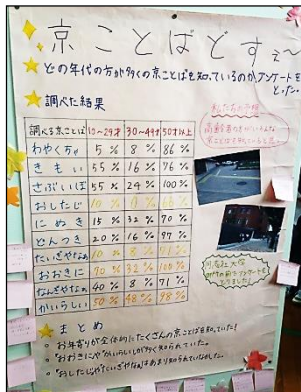 京ことばどすぇ〜
★どの年代の方が多くの京ことばを知っているのかアンケートを
とった。
★調べた結果
調べる京ことば 10〜29才 30〜49才 50才以上
わやくちゃ 5% 8% 86%
きもい 55% 16% 76%
さぶいぼ 55% 24% 100%
おしたじ 10%
にぬき 15% 32% 70%
とんつき 20% 16% 97%
たいぎやなぁ 10% 8%
おおきに 70% 32% 100%
なんぎやなぁ 40% 8% 71%
かいらしい 50% 48% 98%
★まとめ
・お年寄りが全体的にたくさんの京ことばを知っていた!
・"おおきに"や"かいらしい"が多く知られていた。
・"おしたじ"や"たいぎやなぁ"はあまり知られていなかった。
私たちの予想